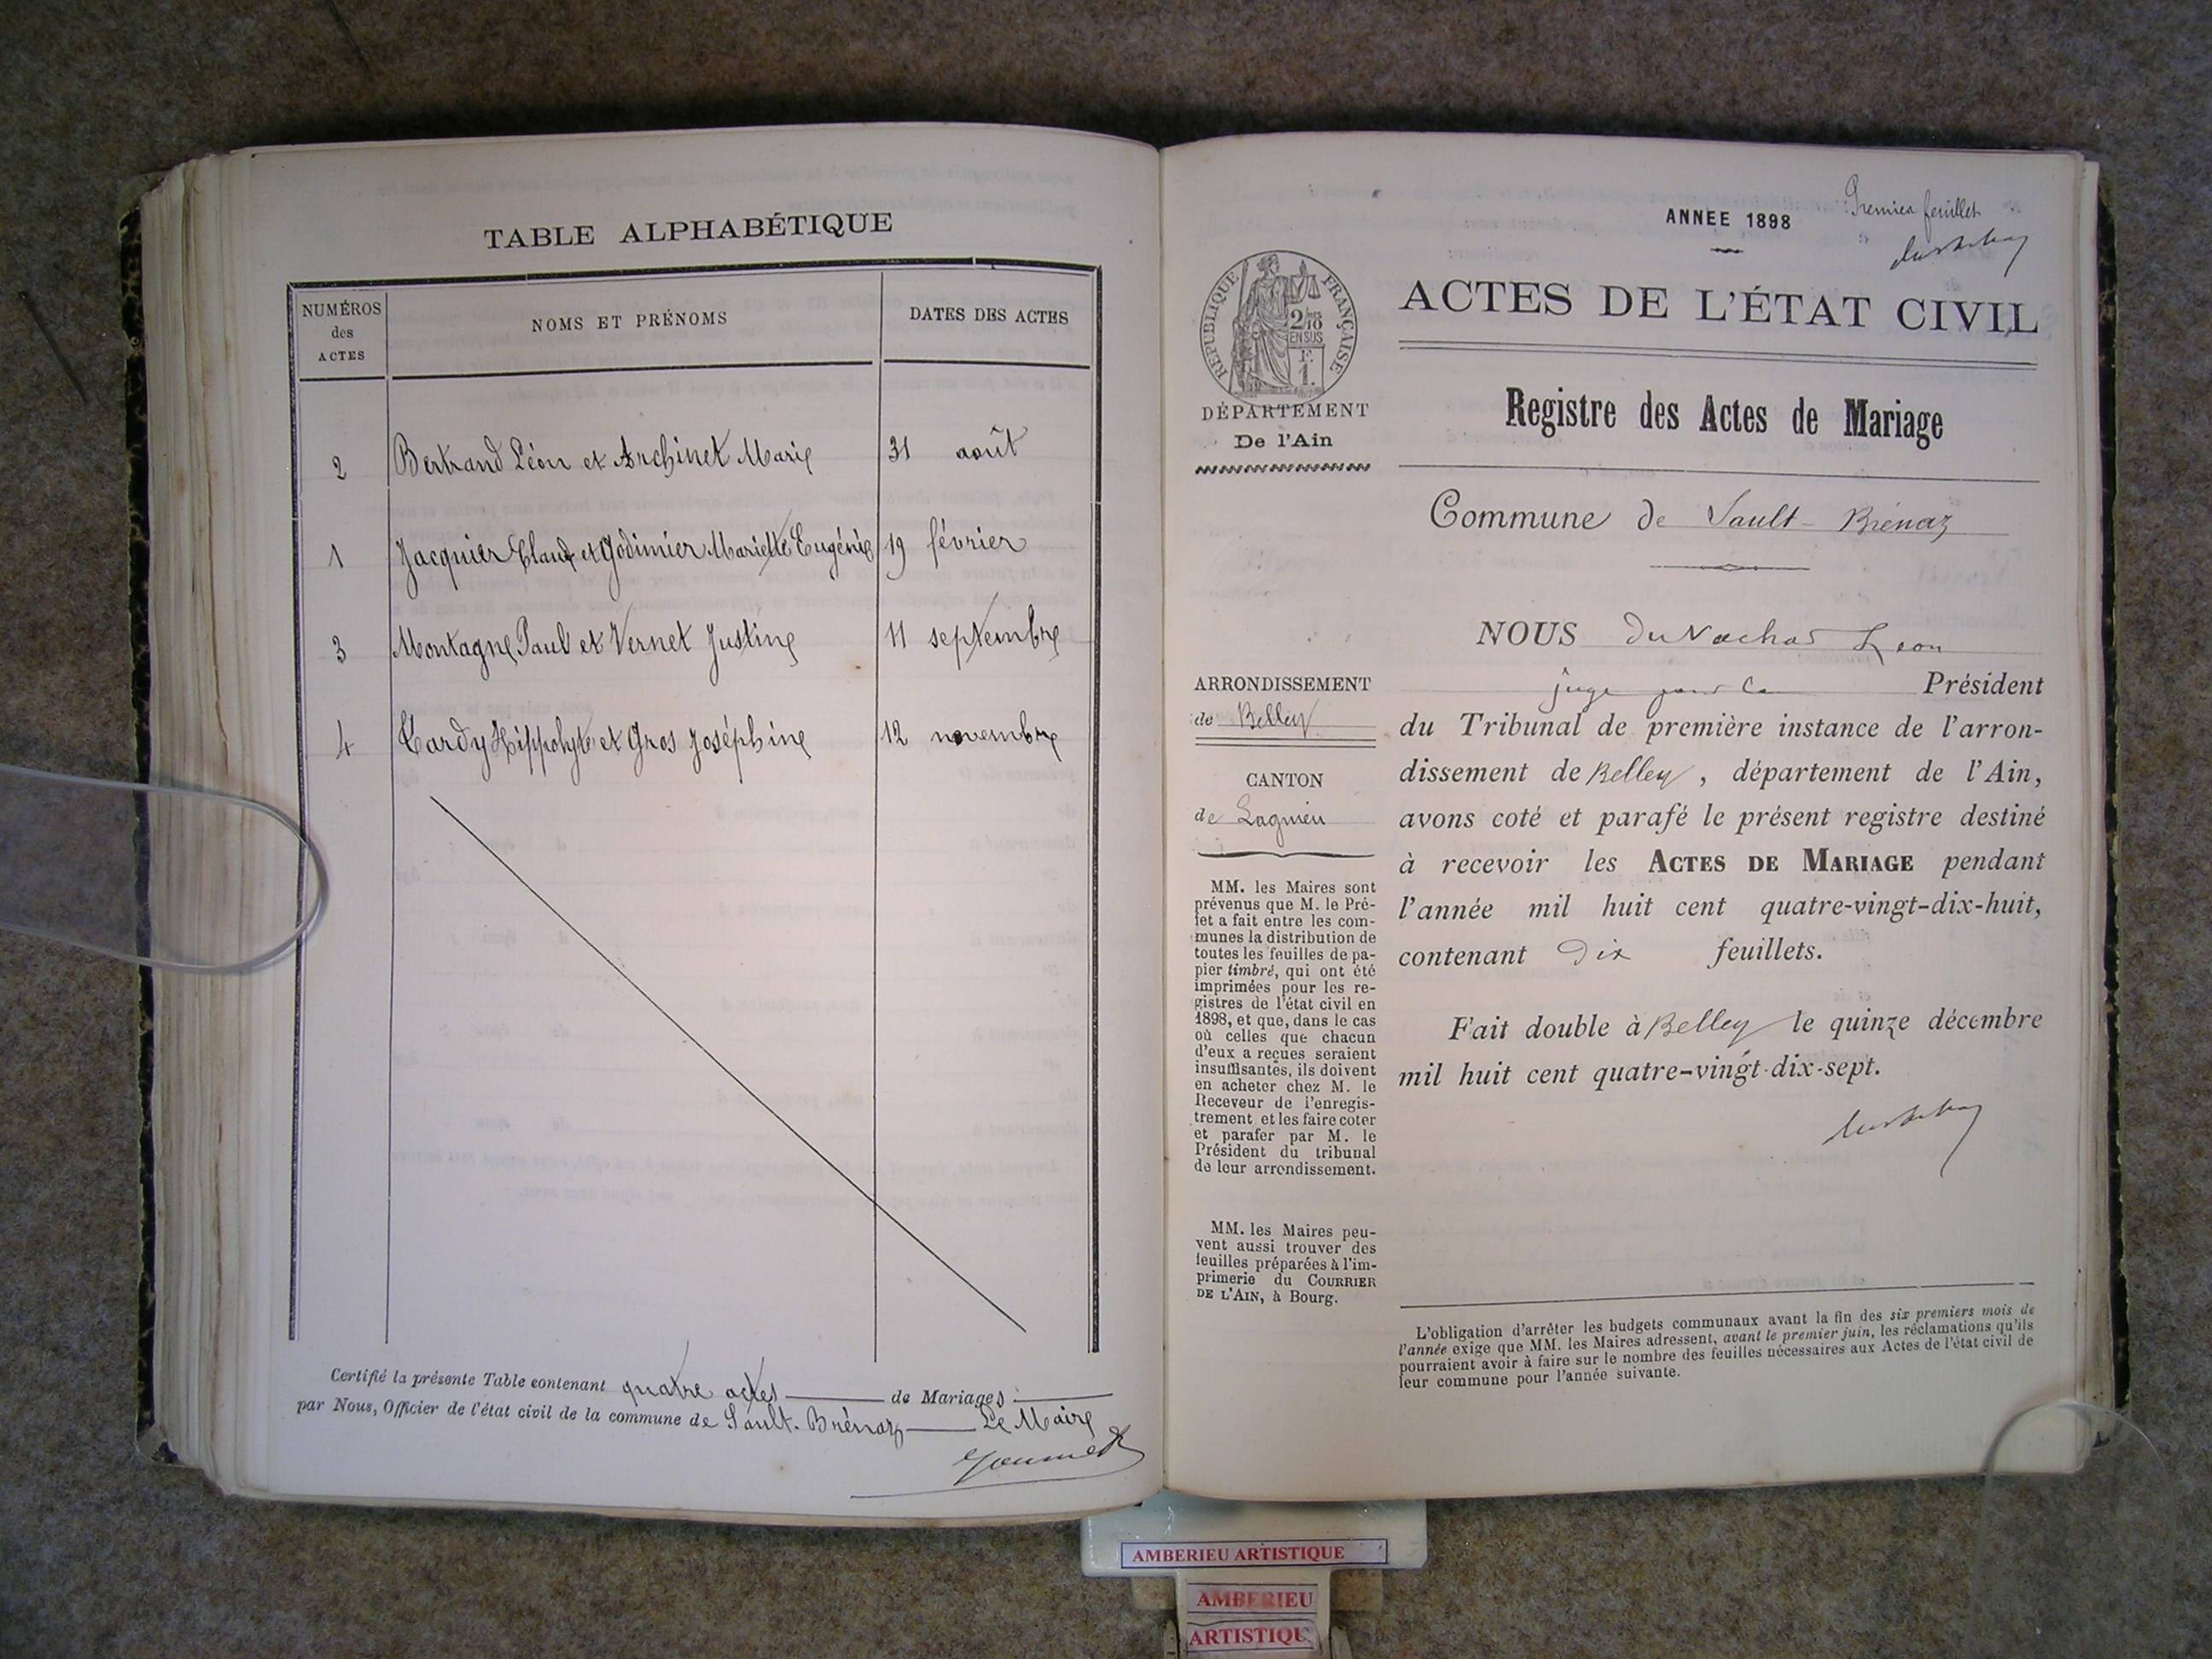 TABLE ALPHABÉTIQUE
NUMÉROS des ACTES
NOMS ET PRÉNOMS
DATES DES ACTES
2 Bertrand Léon et Archinet Marie 31 août
1 Jacquier Claude et Godimier Mariette Eugénie 19 février
3 Montagne Paul et Vernet Justine 11 septembre
4 Tardy Hippolyte et Gros Joséphine 12 novembre
Certifié la présente Table contenant quatre actes de Mariages
par Nous, Officier de l'état civil de la commune de Sault-Brénaz Le Maire
ANNEE 1898
Premier feuillet
RÉPUBLIQUE FRANÇAISE
2/10
EN SUS
1.
ACTES DE L'ÉTAT CIVIL
DÉPARTEMENT
De l'Ain
Registre des Actes de Mariage
Commune de Sault-Brénaz
ARRONDISSEMENT
de Belley
CANTON
de Lagnieu
MM. les Maires sont
prévenus que M. le Pré-
fet a fait entre les com-
munes la distribution de
toutes les feuilles de pa-
pier timbré, qui ont été
imprimées pour les re-
gistres de l'état civil en
1898, et que, dans le cas
où celles que chacun
d'eux a reçues seraient
insuffisantes, ils doivent
en acheter chez M. le
Receveur de l'enregis-
trement et les faire coter
et parafer par M. le
Président du tribunal
de leur arrondissement.
MM. les Maires peu-
vent aussi trouver des
feuilles préparées à l'im-
primerie du COURRIER
DE L'AIN, à Bourg.
NOUS Léon
juge pour le Président
du Tribunal de première instance de l'arron-
dissement de Belley, département de l'Ain,
avons coté et parafé le présent registre destiné
à recevoir les ACTES DE MARIAGE pendant
l'année mil huit cent quatre-vingt-dix-huit,
contenant Dix feuillets.
Fait double à Belley le quinze décembre
mil huit cent quatre-vingt-dix-sept.
L'obligation d'arrêter les budgets communaux avant la fin des six premiers mois de
l'année exige que MM. les Maires adressent, avant le premier juin, les réclamations qu'ils
pourraient avoir à faire sur le nombre des feuilles nécessaires aux Actes de l'état civil de
leur commune pour l'année suivante.
AMBERIEU ARTISTIQUE
AMBERIEU
ARTISTIQUE